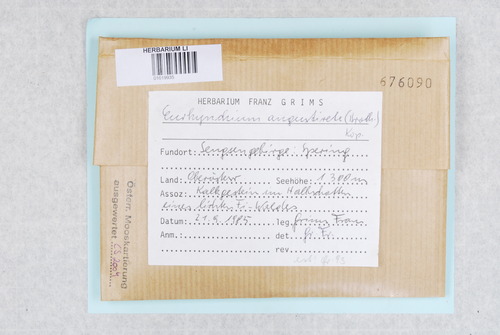 HERBARIUM LI
676090
HERBARIUM FRANZ GRIMS
Eurhynchium angustirete (Broth.)
Kop.
Fundort: Sengsengebirge: Spering
Land: Oberösterr. Seehöhe: 1300 m
Assoz: Kalkgestein im Halbschatten
eines lichten Fi-Waldes
Datum: 21.9.1985 leg. Grims Franz
Anm. det. Gr Fr
rev.
Österr. Mooskartierung
ausgewertet